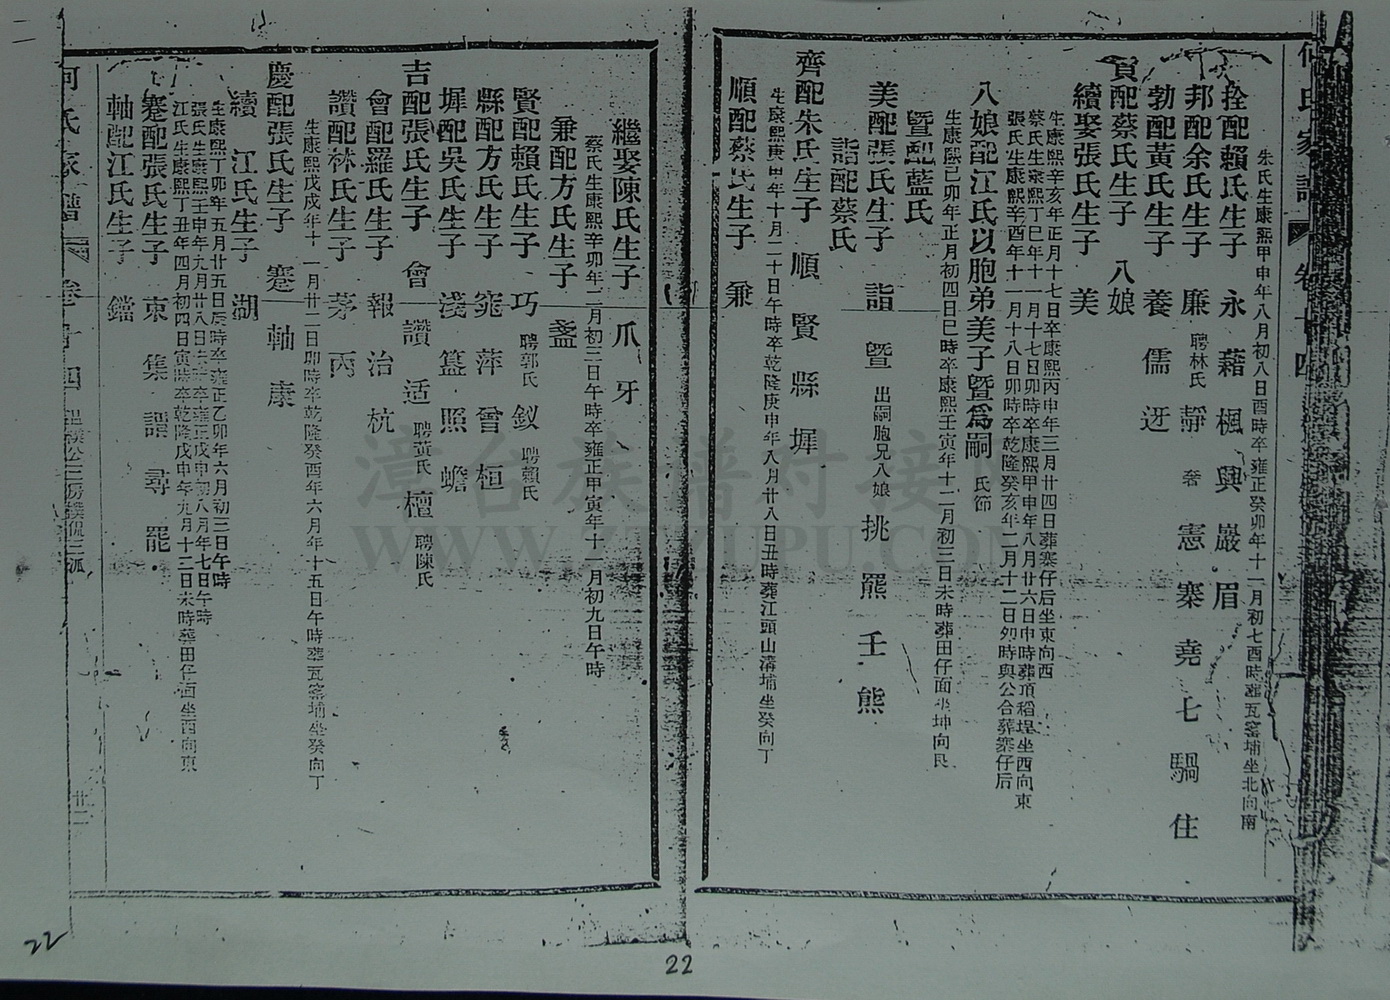 何氏家譜 卷十四
朱氏生康熙甲申年八月初八日酉時卒雍正癸卯年十一月初七酉時葬瓦窰埔坐北向南
拴配賴氏生子 永 藉 楓 興 巖 眉
邦配余氏生子 廉 聘林氏 靜 憲 寨 堯 七 騧 住
勃配黃氏生子 養 儒 迓
配蔡氏生子 八娘
續娶張氏生子 美
生康熙辛亥年正月十七日卒康熙丙申年三月廿四日葬寨仔后坐東向西
蔡氏生康熙丁巳年十一月十七日卯時卒康熙甲申年八月廿六日申時葬頂稻埕坐西向東
張氏生康熙辛酉年十一月十八日卯時卒乾隆癸亥年二月十二日卯時與公合葬寨仔后
八娘配江氏以胞弟美子暨為嗣 氏節
生康熙己卯年正月初四日巳時卒康熙壬寅年十二月初三日未時葬田仔面坐坤向艮
暨配藍氏
美配張氏生子 詣 暨 出嗣胞兄八娘 挑 羆 壬 熊
詣配蔡氏
齊配朱氏生子 順 賢 縣 墀
生康熙庚年十月二十日午時卒乾隆庚申年八月廿八日丑時葬江頭山溝埔坐癸向丁
順配蔡氏生子 兼
繼娶陳氏生子 爪 牙
蔡氏生康熙辛卯年二月初三日午時卒雍正甲寅年十一月初九日午時
兼配方氏生子 盞
賢配賴氏生子 巧 聘郭氏 釵 聘賴氏
縣配方氏生子 萍 曾 桓
墀配吳氏生子 淺 簋 照 蟾
吉配張氏生子 會 讚 适 聘黃氏 檀 聘陳氏
會配羅氏生子 報 治 杭
讚配林氏生子 茅 丙
生康熙戊戌年十一月廿二日卯時卒乾隆癸酉年六月十五日午時葬瓦窰埔坐癸向丁
慶配張氏生子 蹇 軸 康
續 江氏生子 湖
生康熙丁卯年五月廿五日辰時卒雍正乙卯年六月初三日午時
張氏生康熙壬申年九月廿八日卒雍正戊申年八月初七日午時
江氏生康熙丁丑年四月初四日寅時卒乾隆戊申年九月十二日未時葬田仔面坐西向東
蹇配張氏生子 東 集 謳 尋 罷
軸配江氏生子 鐺
何氏家譜 卷十四 三房 三派 廿二
漳台族譜對接
WWW.ZTZUPU.COM
22
22